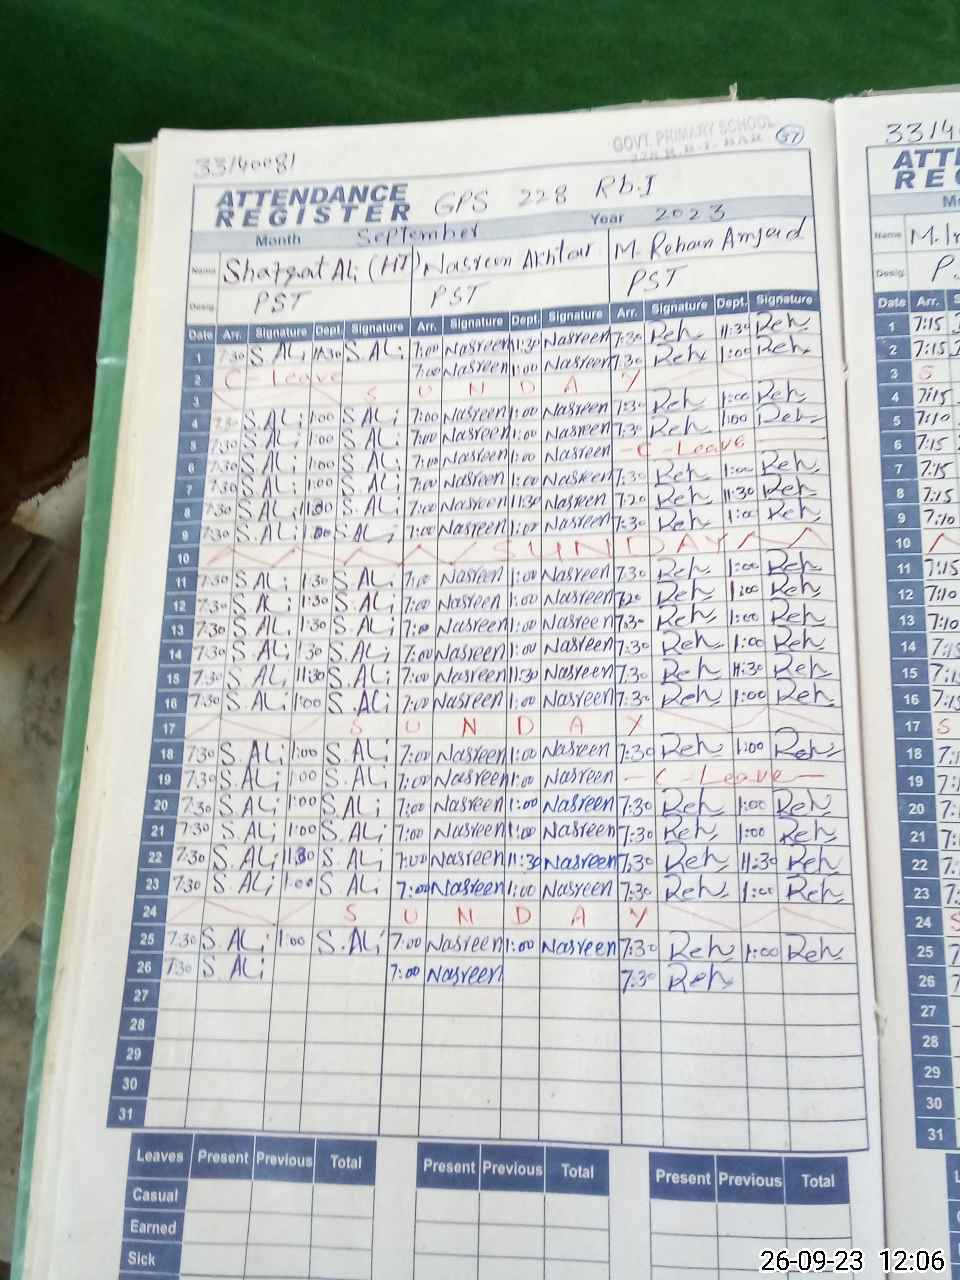 33140081
GOVT. PRIMARY SCHOOL
ATTENDANCE REGISTER GPS 228 Rb.I
Month September Year 2023
Name Shafqat Ali (HT) Nasreen Akhtar M. Rehan Amjad
Desig. PST PST PST
Date Arr. Signature Dept. Signature Arr. Signature Dept. Signature Arr. Signature Dept. Signature
1 7:30 S.ALi 11:30 S.ALi 7:00 Nasreen 11:30 Nasreen 7:30 Reh 11:30 Reh
2 C-Leave 7:00 Nasreen 1:00 Nasreen 7:30 Reh 1:00 Reh
3 S U N D A Y
4 7:30 S.ALi 1:00 S.ALi 7:00 Nasreen 1:00 Nasreen 7:30 Reh 1:00 Reh
5 7:30 S.ALi 1:00 S.ALi 7:00 Nasreen 1:00 Nasreen 7:30 Reh 1:00 Reh
6 7:30 S.ALi 1:00 S.ALi 7:00 Nasreen 1:00 Nasreen -C-Leave
7 7:30 S.ALi 1:00 S.ALi 7:00 Nasreen 1:00 Nasreen 7:30 Reh 1:00 Reh
8 7:30 S.ALi 11:30 S.ALi 7:00 Nasreen 11:30 Nasreen 7:20 Reh 11:30 Reh
9 7:30 S.ALi 1:00 S.ALi 7:00 Nasreen 1:00 Nasreen 7:30 Reh 1:00 Reh
10 SUNDAY
11 7:30 S.ALi 1:30 S.ALi 7:00 Nasreen 1:00 Nasreen 7:30 Reh 1:00 Reh
12 7:30 S.ALi 1:30 S.ALi 7:00 Nasreen 1:00 Nasreen 7:20 Reh 1:00 Reh
13 7:30 S.ALi 1:30 S.ALi 7:00 Nasreen 1:00 Nasreen 7:30 Reh 1:00 Reh
14 7:30 S.ALi 1:30 S.ALi 7:00 Nasreen 1:00 Nasreen 7:30 Reh 1:00 Reh
15 7:30 S.ALi 11:30 S.ALi 7:00 Nasreen 11:30 Nasreen 7:30 Reh 11:30 Reh
16 7:30 S.ALi 1:00 S.ALi 7:00 Nasreen 1:00 Nasreen 7:30 Reh 1:00 Reh
17 S U N D A Y
18 7:30 S.ALi 1:00 S.ALi 7:00 Nasreen 1:00 Nasreen 7:30 Reh 1:00 Reh
19 7:30 S.ALi 1:00 S.ALi 7:00 Nasreen 1:00 Nasreen -C-Leave-
20 7:30 S.ALi 1:00 S.ALi 7:00 Nasreen 1:00 Nasreen 7:30 Reh 1:00 Reh
21 7:30 S.ALi 1:00 S.ALi 7:00 Nasreen 1:00 Nasreen 7:30 Reh 1:00 Reh
22 7:30 S.ALi 11:30 S.ALi 7:00 Nasreen 11:30 Nasreen 7:30 Reh 11:30 Reh
23 7:30 S.ALi 1:00 S.ALi 7:00 Nasreen 1:00 Nasreen 7:30 Reh 1:00 Reh
24 S U N D A Y
25 7:30 S.ALi 1:00 S.ALi 7:00 Nasreen 1:00 Nasreen 7:30 Reh 1:00 Reh
26 7:30 S.ALi 7:00 Nasreen 7:30 Reh
27
28
29
30
31
Leaves Present Previous Total Present Previous Total Present Previous Total
Casual
Earned
Sick
Name M.
Desig. P
Date Arr.
1 7:15
2 7:15
3 S
4 7:15
5 7:10
6 7:15
7 7:15
8 7:15
9 7:10
10
11 7:15
12 7:10
13 7:10
14
15
16 7:15
17 S
18
19
20
21
22
23
24 S
25
26
27
28
29
30
31
26-09-23 12:06